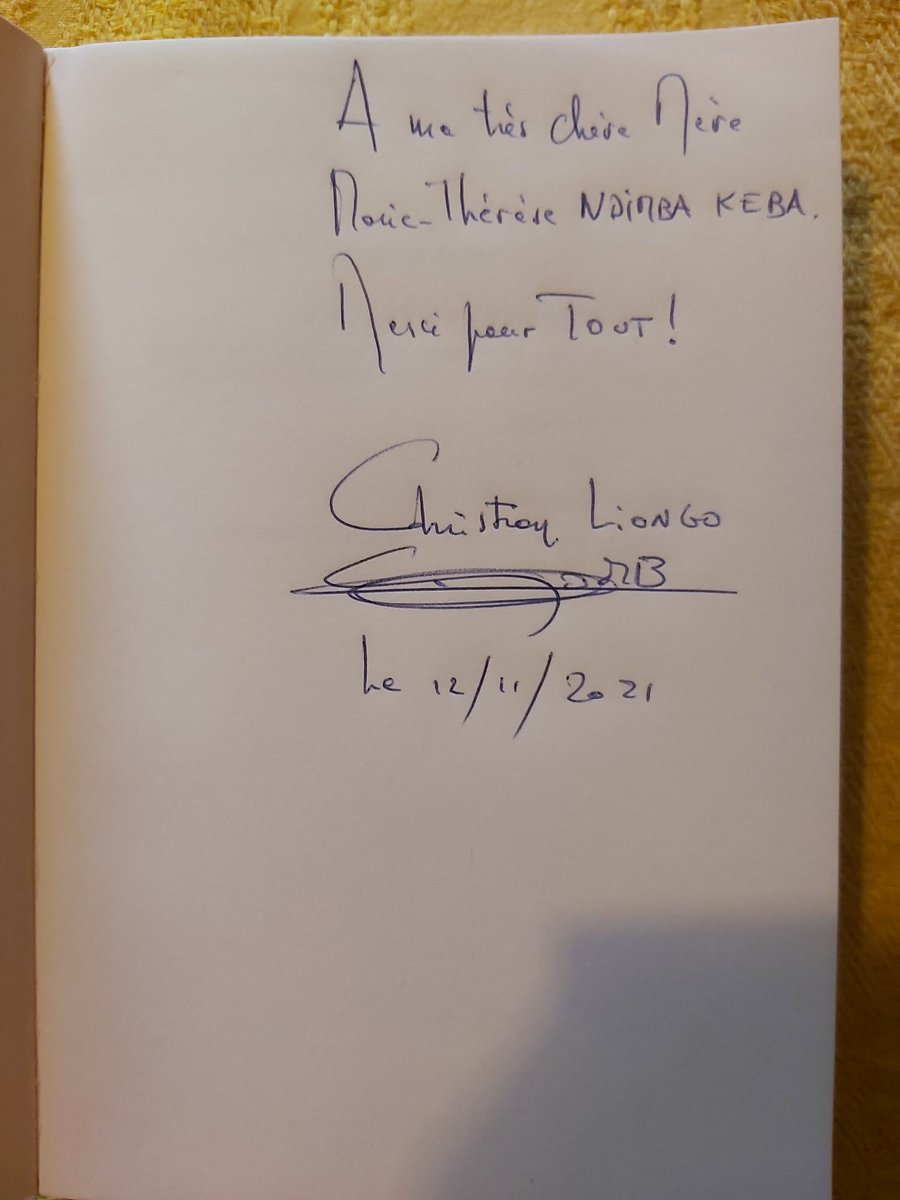 A ma très chère Mère
Marie-Thérèse NDIMBA KEBA.
Merci pour TOUT!
Christian LIONGO
Le 12/11/2021